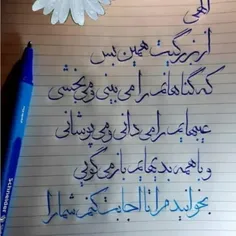 الهی
از بزرگیت همین بس
که گناهانم را می بینی و می بخشی
عیبهایم را می دانی و می پوشانی
و با همه بدیهایم باز می گویی
بخوانید مرا تا اجابت کنم شما را
Schneider